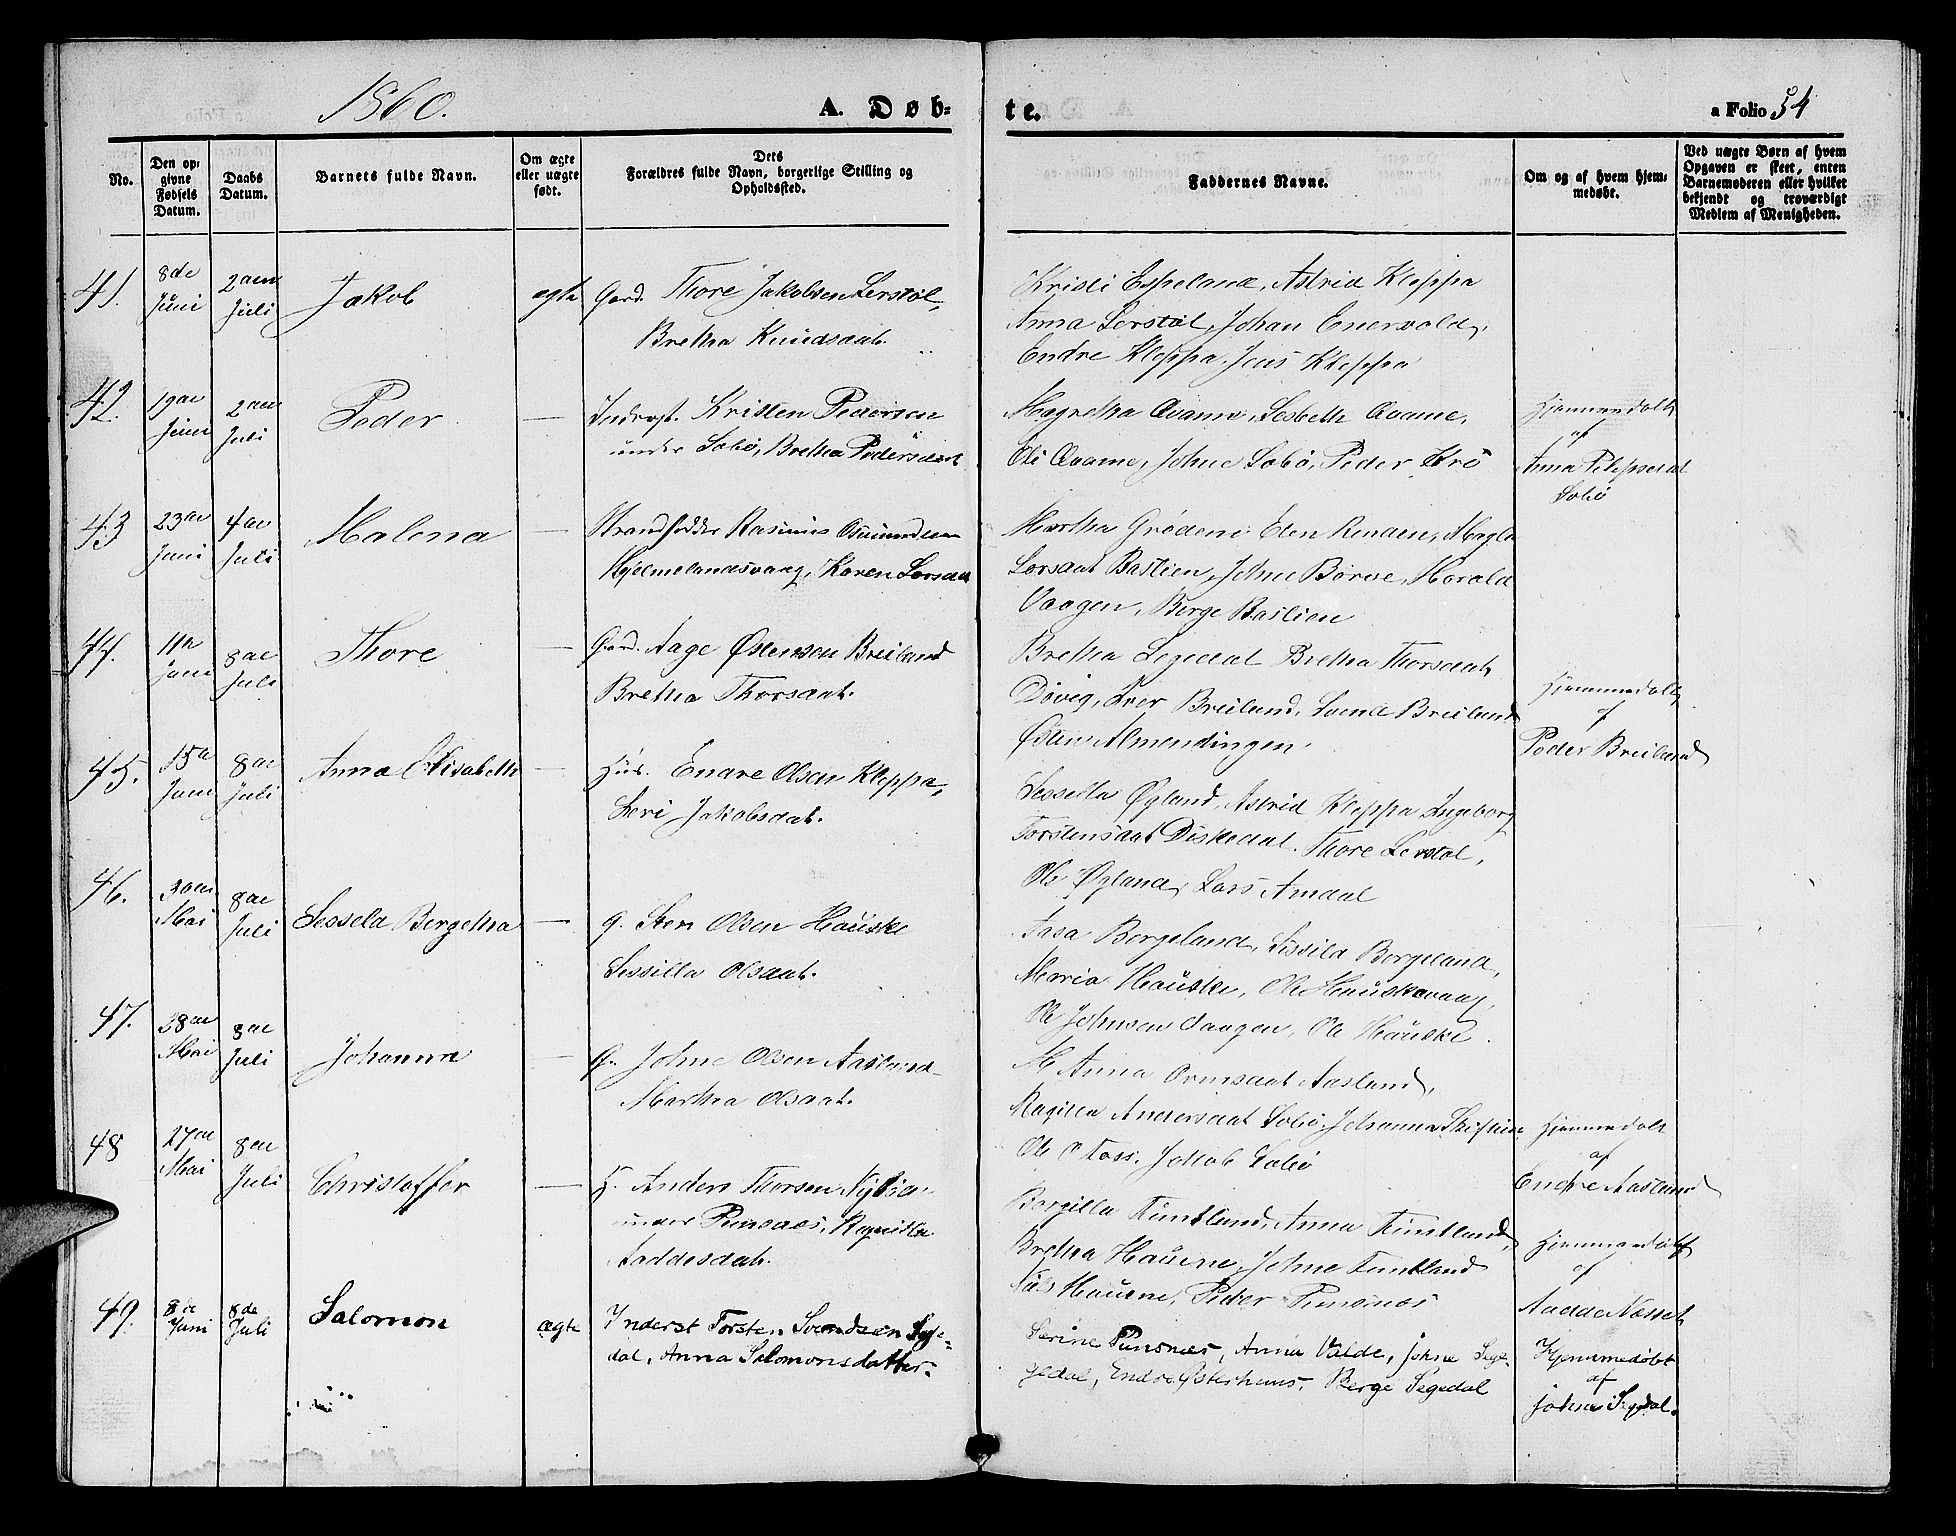 1860.
A. Døb=
te.
a Folio 54
No.
Den op=
givne
Fødsels
Datum.
Daabs
Datum.
Barnets fulde Navn.
Om ægte
eller uægte
født.
Dets
Forældres fulde Navn, borgerlige Stilling og
Opholdssted.
Faddernes Navne.
Om og af hvem hjem=
medøbt.
Ved uægte Børn af hvem
Opgaven er skeet, enten
Barnemoderen eller hvilket
bekjendt og troværdigt
Medlem af Menigheden.
41.
8de
Juni
2aen
Juli
Jakob
ægte
Gard. Thore Jakobsen Lerstøl,
Bretha Knudsdat.
Kristi Espeland, Astrid Kleppa
Anna Lerstøl, Johan Enervold,
Endre Kleppa, Jens Kleppa
42.
19ae
Juni
2aen
Juli
Peder
—
Inderst. Kristen Pedersen
under Sabø, Bretha Pedersdat
Magretha Qvame, Lisbeth Qvame,
Ole Qvame, Johne Sabø, Peder
Hjemmedøbt
af
Anna
Sabø
43
23ae
Juni
4ae
Juli
Malena
—
Strandsidder Rasmus Osmundsen
Hjelmelandsvaag, Karen Larsdat
Martha Grødem Elen Renden,
Larsdat Bastien, Johne Børve, Harald
Vaagen, Berge Bastien
44.
11te
Juni
8ae
Juli
Thore
—
Gard. Aage Østensen Breiland
Bretha Thorsdat.
Bretha Segedal Bretha Thorsdat,
Døvig, Iver Breiland, Svend Breiland
Østen Almendingen
Hjemmedøbt
af
Peder Breiland
45.
15de
Juni
8ae
Juli
Anna Elisabeth
—
Hus. Endre Olsen Kleppa,
Seri Jakobsdat.
Sessella Øgland, Astrid Kleppa Ingeborg
Torstensdat Diskedal. Thore Lerstøl,
Ole Øgland, Lars Amdal
46.
30ae
Mai
8ae
Juli
Sessela Bergetha
—
g. Sten Olsen Hauske
Sessilla Olsdat.
Aasa Bergeland, Sissila Bergeland,
Maria Hauske, Ole Hauskevaag,
Ole Johnsen Vaagen, Ole Hauske.
47.
28ae
Mai
8ae
Juli
Johanna
—
G. Johne Olsen Aasland
Martha Olsdat.
M Anna Ormsdat Aasland,
Ragilla Andersdat Sabø, Johanna
Ole Jakob Sabø
Hjemmedøbt
af
Endre Aasland
48
27ae
Mai
8ae
Juli
Christoffer
—
H. Anders Thorsen
under Punsnæs, Ragnilla
Aaddesdat.
Bergilla Funtland, Anna Funtland,
Bretha Hauene, Johne Funtland
Nils Hauene, Peder Punsnæs
Hjemmedøbt
af
Aadde Næsset
49.
8de
Juni
8de
Juli
Salomon
ægte
Inderst Torsten Svendsen Sege=
dal, Anna Salomonsdatter.
Serine Punsnæs, Anna Valde, Johne Sege=
gedal, Endre Østerhuus, Berge Segedal
Hjemmedøbt
af
Johne Segedal.